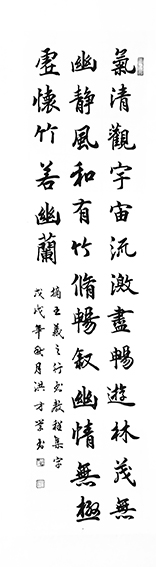 氣清觀宇宙流激盡暢遊林茂無
幽靜風和有竹脩暢敘幽情無極
虛懷竹若幽蘭
摘王羲之行書教程集字
戊戌年秋月洪才業書